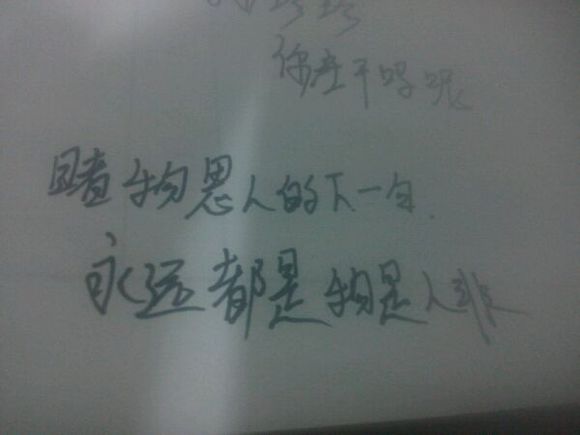 你在干吗呢
睹物思人的下一句
永远都是物是人非